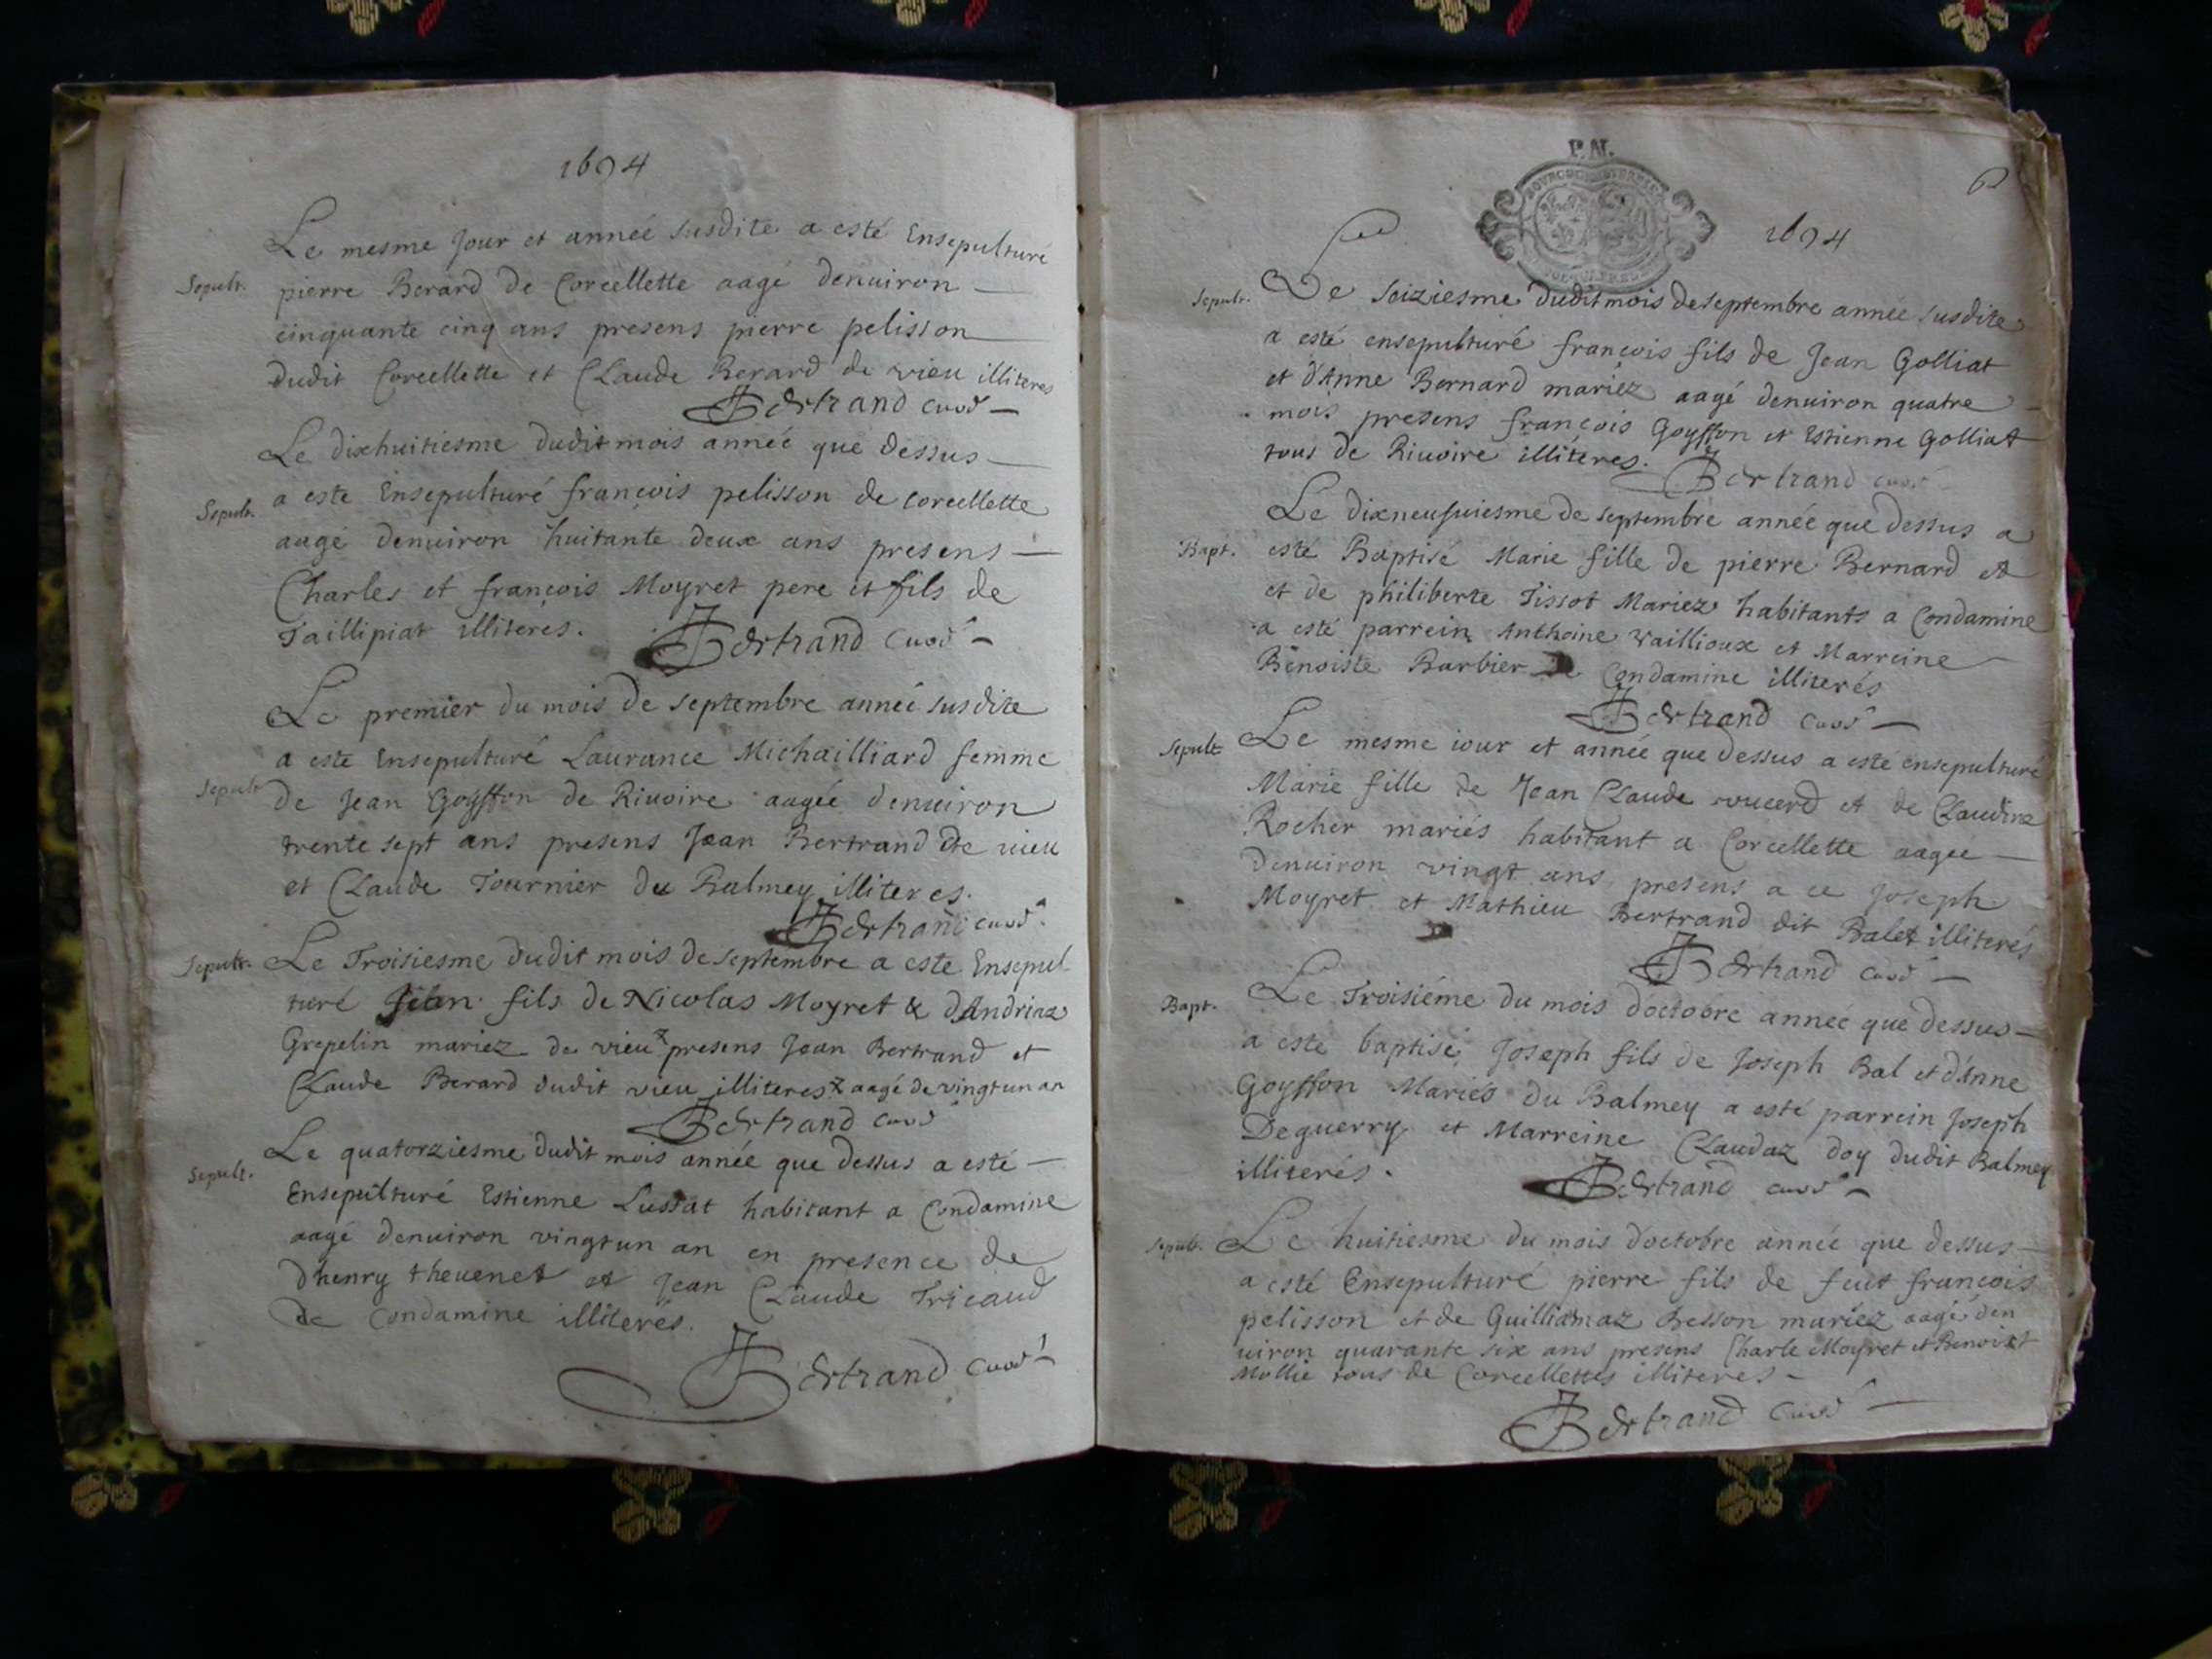 1694
Le mesme Jour et année susdite a esté Ensepulturé
Sepult. pierre Berard de Corcellette aagé denuiron
cinquante cinq ans presens pierre pelisson
dudit Corcellette et Claude Berard de vieu illiteres
Bertrand curé
Le dixhuitiesme dudit mois année que dessus
Sepult. a este Ensepulturé françois pelisson de corcellette
aagé denuiron huitante deux ans presens
Charles et françois Moyret pere et fils de
Taillipiat illiteres. Bertrand curé
Le premier du mois de septembre année susdite
a este Ensepulturé Laurance Michailliard femme
Sepult de Jean Goyffon de Riuoire aagée denuiron
trente sept ans presens Jean Bertrand de vieu
et Claude Tournier du Balmey illiteres.
Bertrand curé
Sepult. Le Troisiesme dudit mois de septembre a este Ensepul
turé Jean fils de Nicolas Moyret & dAndriaz
Grepelin mariez de vieu x presens Jean Bertrand et
Claude Berard dudit vieu illiteres x aagé de vingt un an
Bertrand curé
Le quatorziesme dudit mois année que dessus a esté
Sepult. Ensepulturé Estienne Lussat habitant a Condamine
aagé denuiron vingt un an en presence de
dhenry theuenet et Jean Claude Tricaud
de Condamine illiterés.
Bertrand curé
P.N.
1694
Sepult. Le seiziesme dudit mois de septembre année susdite
a esté ensepulturé françois fils de Jean Golliat
et d'Anne Bernard mariez aagé denuiron quatre
mois presens françois Goyffon et Estienne Golliat
tous de Riuoire illiteres. Bertrand curé
Le dixneufuiesme de septembre année que dessus a
Bapt. esté Baptisé Marie fille de pierre Bernard et
et de philiberte Tissot Mariez habitants a Condamine
a esté parrein Anthoine vaillioux et Marreine
Benoiste Barbier de Condamine illiterés
Bertrand curé
Sepult Le mesme iour et année que dessus a este ensepulturé
Marie fille de Jean Claude et de Claudine
Rocher mariés habitant a Corcellette aagee
denuiron vingt ans presens a ce Joseph
Moyret et Mathieu Bertrand dit Balet illiterés
Bertrand curé
Bapt. Le Troisiéme du mois doctobre annee que dessus
a este baptisé Joseph fils de Joseph Bal et dAnne
Goyffon Mariés du Balmey a esté parrein Joseph
Deguerry et Marreine Claudaz doy dudit Balmey
illiterés. Bertrand curé
Sepult. Le huitiesme du mois doctobre année que dessus
a esté Ensepulturé pierre fils de feut françois
pelisson et de Guilliamaz Besson mariéz aagé den
uiron quarante six ans presens Charle Moyret et Benoist
Mollie tous de Corcellettes illiteres
Bertrand curé